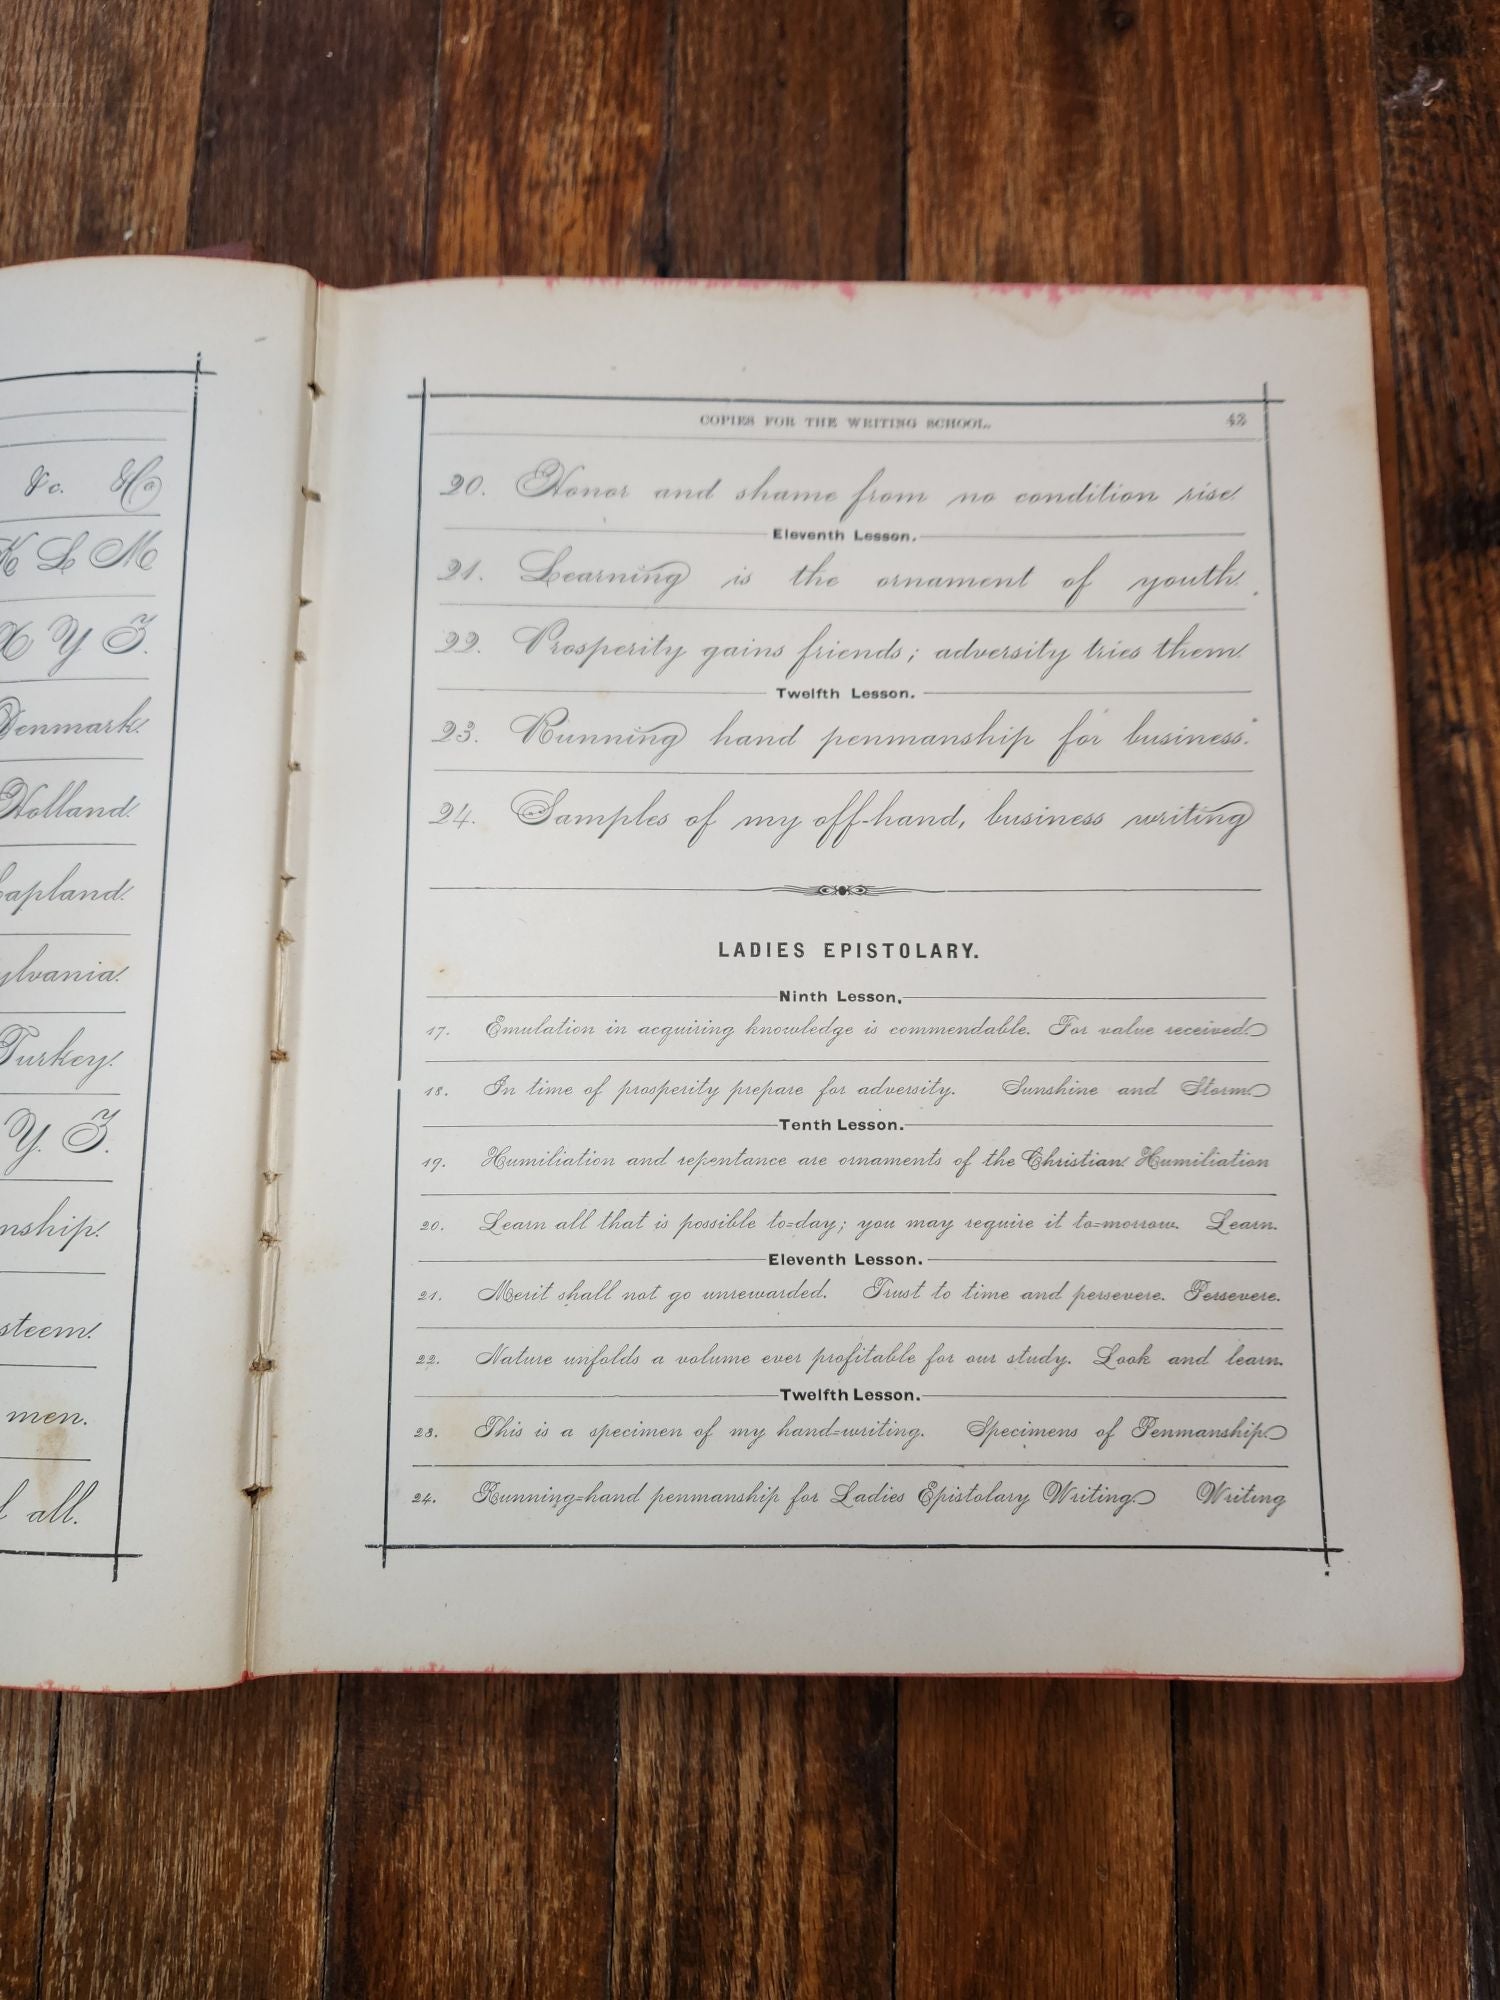 &c. Ha
K L M
X Y Z.
Denmark.
Holland.
Lapland.
ylvania.
Turkey.
Y. Z.
nship.
steem.
men.
l all.
COPIES FOR THE WRITING SCHOOL. 43
20. Honor and shame from no condition rise.
Eleventh Lesson.
21. Learning is the ornament of youth.
22. Prosperity gains friends; adversity tries them.
Twelfth Lesson.
23. Running hand penmanship for business.
24. Samples of my off-hand, business writing
LADIES EPISTOLARY.
Ninth Lesson.
17. Emulation in acquiring knowledge is commendable. For value received.
18. In time of prosperity prepare for adversity. Sunshine and Storm.
Tenth Lesson.
19. Humiliation and repentance are ornaments of the Christian. Humiliation
20. Learn all that is possible to=day; you may require it to=morrow. Learn.
Eleventh Lesson.
21. Merit shall not go unrewarded. Trust to time and persevere. Persevere.
22. Nature unfolds a volume ever profitable for our study. Look and learn.
Twelfth Lesson.
23. This is a specimen of my hand=writing. Specimens of Penmanship.
24. Running=hand penmanship for Ladies Epistolary Writing. Writing